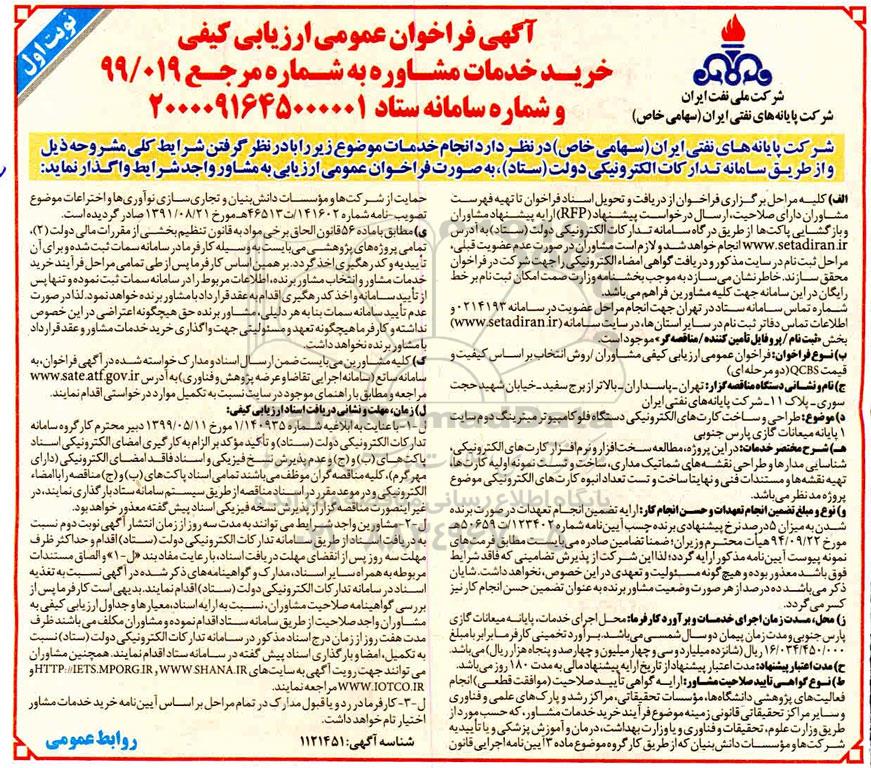 نوبت اول
آگهی فراخوان عمومی ارزیابی کیفی
خریـد خدمات مشـاوره به شـماره مرجـع ۹۹/۰۱۹
و شماره سامانه ستاد ۲۰۰۰۰۹۱۶۴۵۰۰۰۰۰۱
شرکت ملی نفت ایران
شرکت پایانه‌های نفتی ایران (سهامی خاص)
شرکت پایانه‌های نفتی ایران (سهامی خاص) در نظر دارد انجام خدمات موضوع زیر را با در نظر گرفتن شرایط کلی مشروحه ذیل
و از طریق سامانه تدارکات الکترونیکی دولت (ستاد)، به صورت فراخوان عمومی ارزیابی به مشاور واجد شرایط واگذار نماید:
الف) کلیه مراحل برگزاری فراخوان از دریافت و تحویل اسناد فراخوان تا تهیه فهرست
مشاوران دارای صلاحیت، ارسال درخواست پیشنهاد (RFP) ارایه پیشنهاد مشاوران
و بازگشایی پاکت‌ها از طریق درگاه سامانه تدارکات الکترونیکی دولت (ستاد) به آدرس
www.setadiran.ir انجام خواهد شد و لازم است مشاوران در صورت عدم عضویت قبلی،
مراحل ثبت نام در سایت مذکور و دریافت گواهی امضاء الکترونیکی را جهت شرکت در فراخوان
محقق سازند. خاطرنشان می‌سازد به موجب بخشنامه وزارت صمت امکان ثبت نام بر خط
رایگان در این سامانه جهت کلیه مشاورین فراهم می‌باشد.
شماره تماس سامانه ستاد در تهران جهت انجام مراحل عضویت در سامانه ۰۲۱۴۱۹۳ و
اطلاعات تماس دفاتر ثبت نام در سایر استان‌ها، در سایت سامانه (www.setadiran.ir)
بخش «ثبت نام / پروفایل تأمین کننده / مناقصه گر» موجود است.
ب) نوع فراخوان: فراخوان عمومی ارزیابی کیفی مشاوران / روش انتخاب بر اساس کیفیت و
قیمت QCBS (دو مرحله ای)
ج) نام و نشانی دستگاه مناقصه گزار: تهران - پاسداران - بالاتر از برج سفید - خیابان شهید حجت
سوری - پلاک ۱۱ - شرکت پایانه‌های نفتی ایران
د) موضوع: طراحی و ساخت کارت‌های الکترونیکی دستگاه فلوکامپیوتر میترینگ دوم سایت
۱ پایانه میعانات گازی پارس جنوبی
هـ) شرح مختصر خدمات: در این پروژه، مطالعه سخت‌افزار و نرم‌افزار کارت‌های الکترونیکی،
شناسایی مدارها و طراحی نقشه‌های شماتیک مداری، ساخت و تست نمونه اولیه کارت‌ها،
تهیه نقشه‌ها و مستندات فنی و نهایتا ساخت و تست تعداد انبوه کارت‌های الکترونیکی موضوع
پروژه مدنظر می‌باشد.
و) نوع و مبلغ تضمین انجام تعهدات و حسن انجام کار: ارایه تضمین انجام تعهدات در صورت برنده
شدن به میزان ۵ درصد نرخ پیشنهادی برنده حسب آیین نامه شماره ۱۲۳۴۰۲/ت۵۰۶۵۹هـ
مورخ ۹۴/۰۹/۲۲ هیأت محترم وزیران؛ ضمنا تضامین صادره می‌بایست مطابق فرمت‌های
نمونه پیوست آیین‌نامه مذکور ارایه گردد؛ لذا این شرکت از پذیرش تضامینی که فاقد شرایط
فوق باشد معذور بوده و هیچ گونه مسئولیت و تعهدی در این خصوص، نخواهد داشت. شایان
ذکر می‌باشد ده درصد از هر صورت وضعیت مشاور برنده به عنوان تضمین حسن انجام کار نیز
کسر می‌گردد.
ز) محل، مدت زمان اجرای خدمات و برآورد کارفرما: محل اجرای خدمات، پایانه میعانات گازی
پارس جنوبی و مدت زمان پیمان دو سال شمسی می‌باشد. برآورد تخمینی کارفرما برابر با مبلغ
۱۶/۰۳۴/۴۵۰/۰۰۰ ریال (شانزده میلیارد و سی و چهار میلیون و چهارصد و پنجاه هزار ریال) می‌باشد.
ح) مدت اعتبار پیشنهاد: مدت اعتبار پیشنهاد از تاریخ ارایه پیشنهاد مالی به مدت ۱۸۰ روز می‌باشد.
ط) نوع گواهی تأیید صلاحیت مشاور: ارایه گواهی تأیید صلاحیت (موافقت قطعی) انجام
فعالیت‌های پژوهشی دانشگاه‌ها، مؤسسات تحقیقاتی، مراکز رشد و پارک‌های علمی و فناوری
و سایر مراکز تحقیقاتی قانونی زمینه موضوع فرآیند خرید خدمات مشاور، که حسب مورد از
طریق وزارت علوم، تحقیقات و فناوری و یا وزارت بهداشت، درمان و آموزش پزشکی و یا تأییدیه
شرکت‌ها و مؤسسات دانش بنیان که از طریق کارگروه موضوع ماده ۳ آیین‌نامه اجرایی قانون
حمایت از شرکت‌ها و مؤسسات دانش‌بنیان و تجاری‌سازی نوآوری‌ها و اختراعات موضوع
تصویب‌نامه شماره ۱۴۱۶۰۲/ت۴۶۵۱۳هـ مورخ ۱۳۹۱/۰۸/۲۱ صادر گردیده است.
ی) مطابق با ماده ۵۶ قانون الحاق برخی مواد به قانون تنظیم بخشی از مقررات مالی دولت (۲)،
تمامی پروژه‌های پژوهشی می‌بایست به وسیله کارفرما در سامانه سمات ثبت شده و برای آن
تأییدیه و کد رهگیری اخذ گردد. بر همین اساس کارفرما پس از طی تمامی مراحل فرآیند خرید
خدمات مشاور و انتخاب مشاور برنده، اطلاعات مربوط را در سامانه سمات ثبت نموده و تنها پس
از تأیید سامانه و اخذ کد رهگیری اقدام به عقد قرارداد با مشاور برنده خواهد نمود. لذا در صورت
عدم تأیید سامانه سمات بنا به هر دلیلی، مشاور برنده حق هیچگونه اعتراضی در این خصوص
نداشته و کارفرما هیچگونه تعهد و مسئولیتی جهت واگذاری خرید خدمات مشاور و عقد قرارداد
با مشاور برنده نخواهد داشت.
ک) کلیه مشاورین می‌بایست ضمن ارسال اسناد و مدارک خواسته شده در آگهی فراخوان، به
سامانه ساتع (سامانه اجرایی تقاضا و عرضه پژوهش و فناوری) به آدرس www.sate.atf.gov.ir
مراجعه و مطابق با راهنمای موجود در سایت نسبت به تکمیل موارد درخواستی اقدام نمایند.
ل) زمان، مهلت و نشانی دریافت اسناد ارزیابی کیفی:
ل-۱- با عنایت به ابلاغیه شماره ۱/۱۴۰۹۳۵ مورخ ۱۳۹۹/۰۵/۱۱ دبیر محترم کارگروه سامانه
تدارکات الکترونیکی دولت (ستاد) و تأکید مؤکد بر الزام به کارگیری امضای الکترونیکی اسناد
پاکت‌های (ب) و (ج) و عدم پذیرش نسخ فیزیکی و اسناد فاقد امضای الکترونیکی (دارای
مهر گرم)، کلیه مناقصه گران موظف می‌باشند تمامی اسناد پاکت‌های (ب) و (ج) مناقصه را با امضاء
الکترونیکی و در موعد مقرر در اسناد مناقصه از طریق سیستم سامانه ستاد بارگذاری نمایند، در
غیر اینصورت مناقصه گزار از پذیرش نسخه فیزیکی اسناد پیش گفته معذور خواهد بود.
ل-۲- مشاورین واجد شرایط می توانند به مدت سه روز از زمان انتشار آگهی نوبت دوم نسبت
به دریافت اسناد از طریق سامانه تدارکات الکترونیکی دولت (ستاد) اقدام و حداکثر ظرف
مهلت سه روز پس از انقضای مهلت دریافت اسناد، با رعایت مفاد بند «ل-۱» و الصاق مستندات
مربوطه به همراه سایر اسناد، مدارک و گواهینامه‌های ذکر شده در آگهی نسبت به تغذیه
اسناد در سامانه تدارکات الکترونیکی دولت (ستاد) اقدام نمایند. بدیهی است کارفرما پس از
بررسی گواهینامه صلاحیت مشاوران، نسبت به ارایه اسناد، معیارها و جداول ارزیابی کیفی به
مشاوران واجد صلاحیت از طریق سامانه ستاد اقدام نموده و مشاوران مکلف می‌باشند ظرف
مدت هفت روز از زمان درج اسناد مذکور در سامانه تدارکات الکترونیکی دولت (ستاد) نسبت
به تکمیل، امضا و بارگذاری اسناد پیش گفته در سامانه ستاد اقدام نمایند. همچنین مشاوران
می توانند جهت رویت آگهی به سایت‌های WWW.SHANA.IR، HTTP://IETS.MPORG.IR و
WWW.IOTCO.IR مراجعه نمایند.
ل-۳- کارفرما در رد و یا قبول مدارک در تمام مراحل بر اساس آیین‌نامه خرید خدمات مشاور
اختیار تام خواهد داشت.
شناسه آگهی: ۱۱۲۱۴۵۱
روابط عمومی